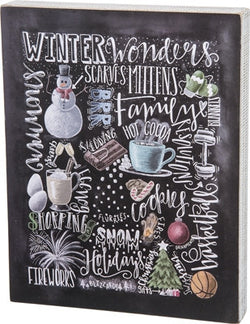 WINTER Wonders
SCARVES MITTENS
Family
BRR
BRR
SLEDDING
HOT COCOA
Cookies
SHOPPING
FLURRIES
Basketball
SNOW
Holidays
FIREWORKS